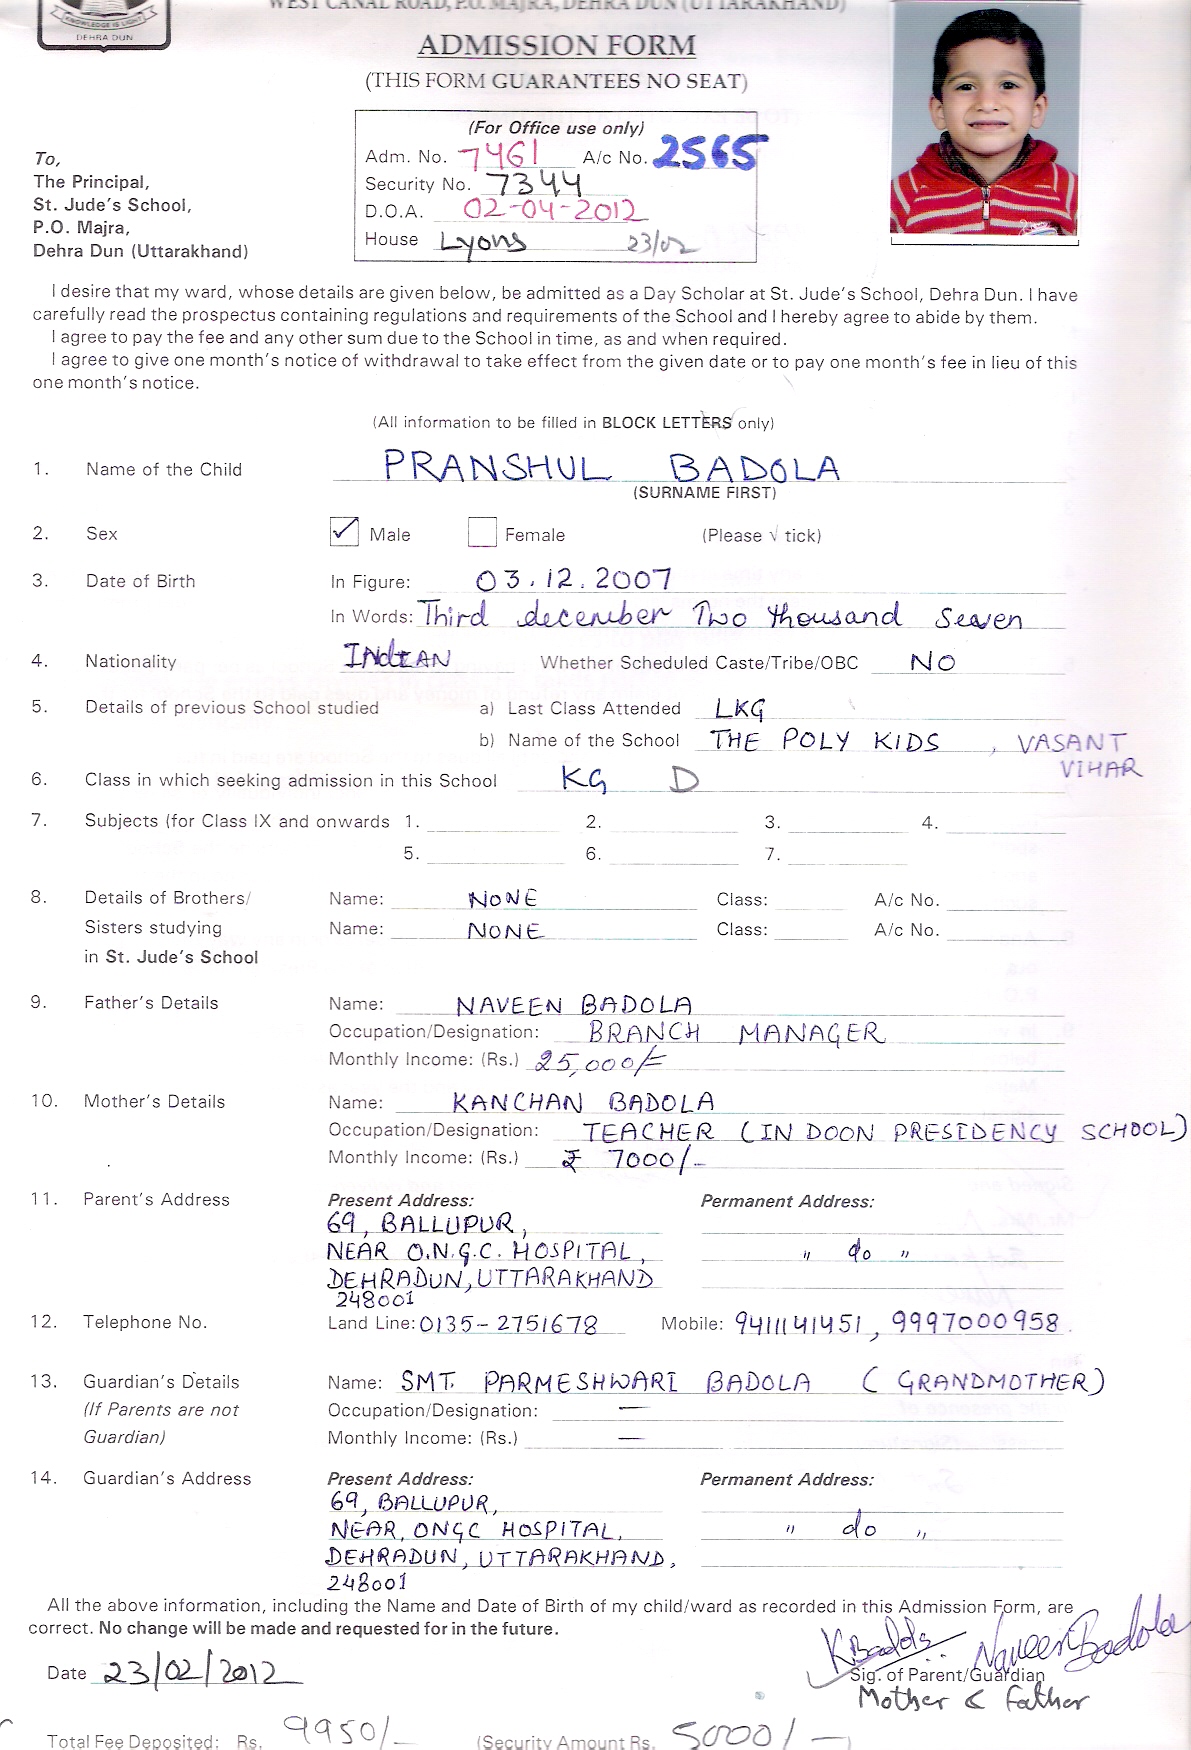 KNOWLEDGE IS LIGHT
DEHRA DUN
WEST CANAL ROAD, P.O. MAJRA, DEHRA DUN (UTTARAKHAND)
ADMISSION FORM
(THIS FORM GUARANTEES NO SEAT)
(For Office use only)
Adm. No. 7461 A/c No. 2565
Security No. 7344
D.O.A. 02-04-2012
House Lyons 23/02
To,
The Principal,
St. Jude's School,
P.O. Majra,
Dehra Dun (Uttarakhand)
I desire that my ward, whose details are given below, be admitted as a Day Scholar at St. Jude's School, Dehra Dun. I have
carefully read the prospectus containing regulations and requirements of the School and I hereby agree to abide by them.
I agree to pay the fee and any other sum due to the School in time, as and when required.
I agree to give one month's notice of withdrawal to take effect from the given date or to pay one month's fee in lieu of this
one month's notice.
(All information to be filled in BLOCK LETTERS only)
1. Name of the Child PRANSHUL BADOLA
(SURNAME FIRST)
2. Sex ✓ Male Female (Please √ tick)
3. Date of Birth In Figure: 03.12.2007
In Words: Third december Two thousand Seaven
4. Nationality INdIAN Whether Scheduled Caste/Tribe/OBC NO
5. Details of previous School studied a) Last Class Attended LKG
b) Name of the School THE POLY KIDS , VASANT
VIHAR
6. Class in which seeking admission in this School KG D
7. Subjects (for Class IX and onwards 1. 2. 3. 4.
5. 6. 7.
8. Details of Brothers/ Name: NONE Class: A/c No.
Sisters studying Name: NONE Class: A/c No.
in St. Jude's School
9. Father's Details Name: NAVEEN BADOLA
Occupation/Designation: BRANCH MANAGER
Monthly Income: (Rs.) 25,000/=
10. Mother's Details Name: KANCHAN BADOLA
Occupation/Designation: TEACHER (IN DOON PRESIDENCY SCHOOL)
Monthly Income: (Rs.) ₹ 7000/-
11. Parent's Address Present Address: Permanent Address:
69, BALLUPUR,
NEAR O.N.G.C. HOSPITAL, " do "
DEHRADUN, UTTARAKHAND
248001
12. Telephone No. Land Line: 0135-2751678 Mobile: 9411141451, 9997000958
13. Guardian's Details Name: SMT. PARMESHWARI BADOLA (GRANDMOTHER)
(If Parents are not Occupation/Designation: —
Guardian) Monthly Income: (Rs.) —
14. Guardian's Address Present Address: Permanent Address:
69, BALLUPUR,
NEAR, ONGC HOSPITAL, " do "
DEHRADUN, UTTARAKHAND,
248001
All the above information, including the Name and Date of Birth of my child/ward as recorded in this Admission Form, are
correct. No change will be made and requested for in the future.
KBadola Naveen Badola
Date 23/02/2012 Sig. of Parent/Guardian
Mother & Father
Total Fee Deposited: Rs. 9950/- (Security Amount Rs. 5000/-)